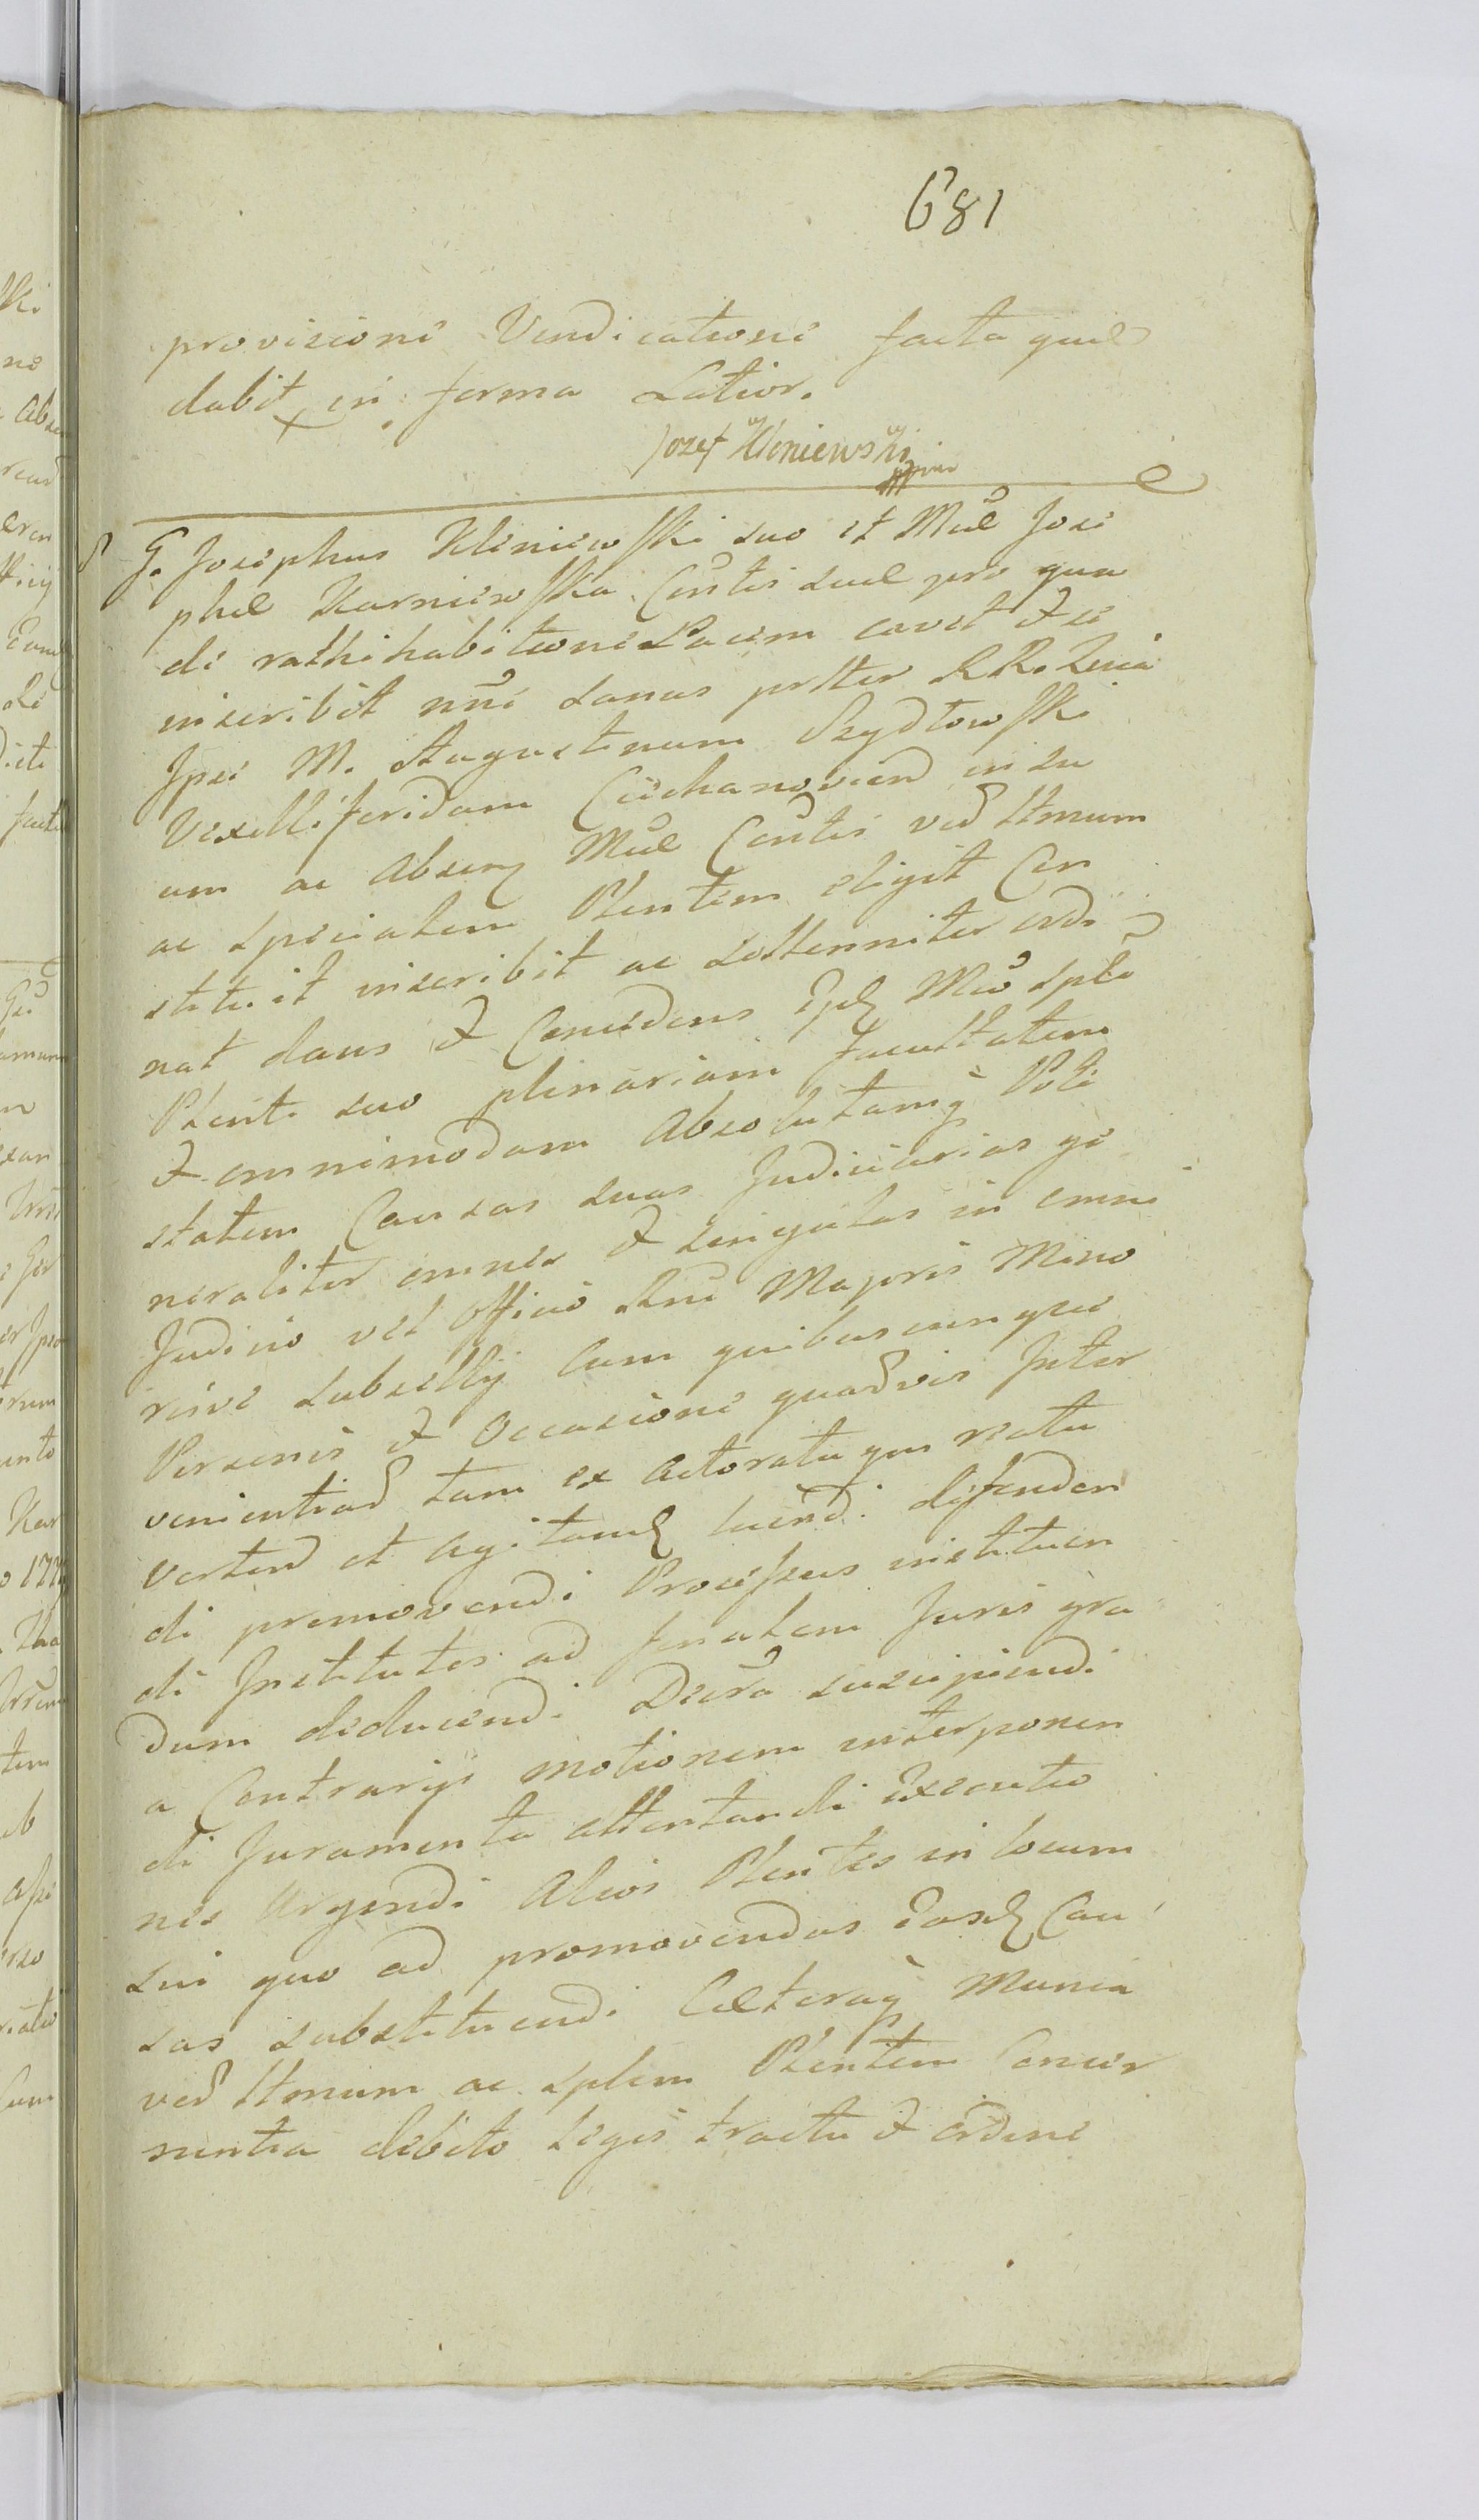 681
provisione Vendicatione facta quae
dabit in forma Latior.
Jozef Kliniewski mpp
G. Josephus Kliniewski suo et Mae Jose
phae Karniewska Contis suae pro qua
de rathihabitione Pacem cavet et se
inscribit nne sanus pstter RR. Zena
Ipse M. Augustinum Szydłowski
Vexilliferidam Ciechanovien in su
um ac absenq Mae Contis ved Itmum
ac specialem Plentem eligit Con
stituit inscribit ac sollenniter ordi
nat dans et Concedens eidq Mco spli
Plenti suo plenariam facultatem
et omnimodam absolutamq Pote
statem Causas suas Judiciarias ge
neraliter omnes et singulas in omni
Judicio vel Officio Rni Majoris Mino
risve subsellij Cum quibuscunque
Personis et Occasione quavis Inter
venientiad tam ex actoratu qm reatu
vertend et agitand tuendi defenden
di promovendi Processus instituen
di Institutos ad finalem Juris gra
dum deducendi Decra suscipiendi
a Contrarijs motionem interponen
di Juramenta attentandi Executio
nes Urgendi Alios Plentes in locum
sui quo ad promovendas easq Cau
sas substituendi Caeteraq Munia
ved Itmum ac splem Plentem Concer
nentia debito legis tractu et ordine